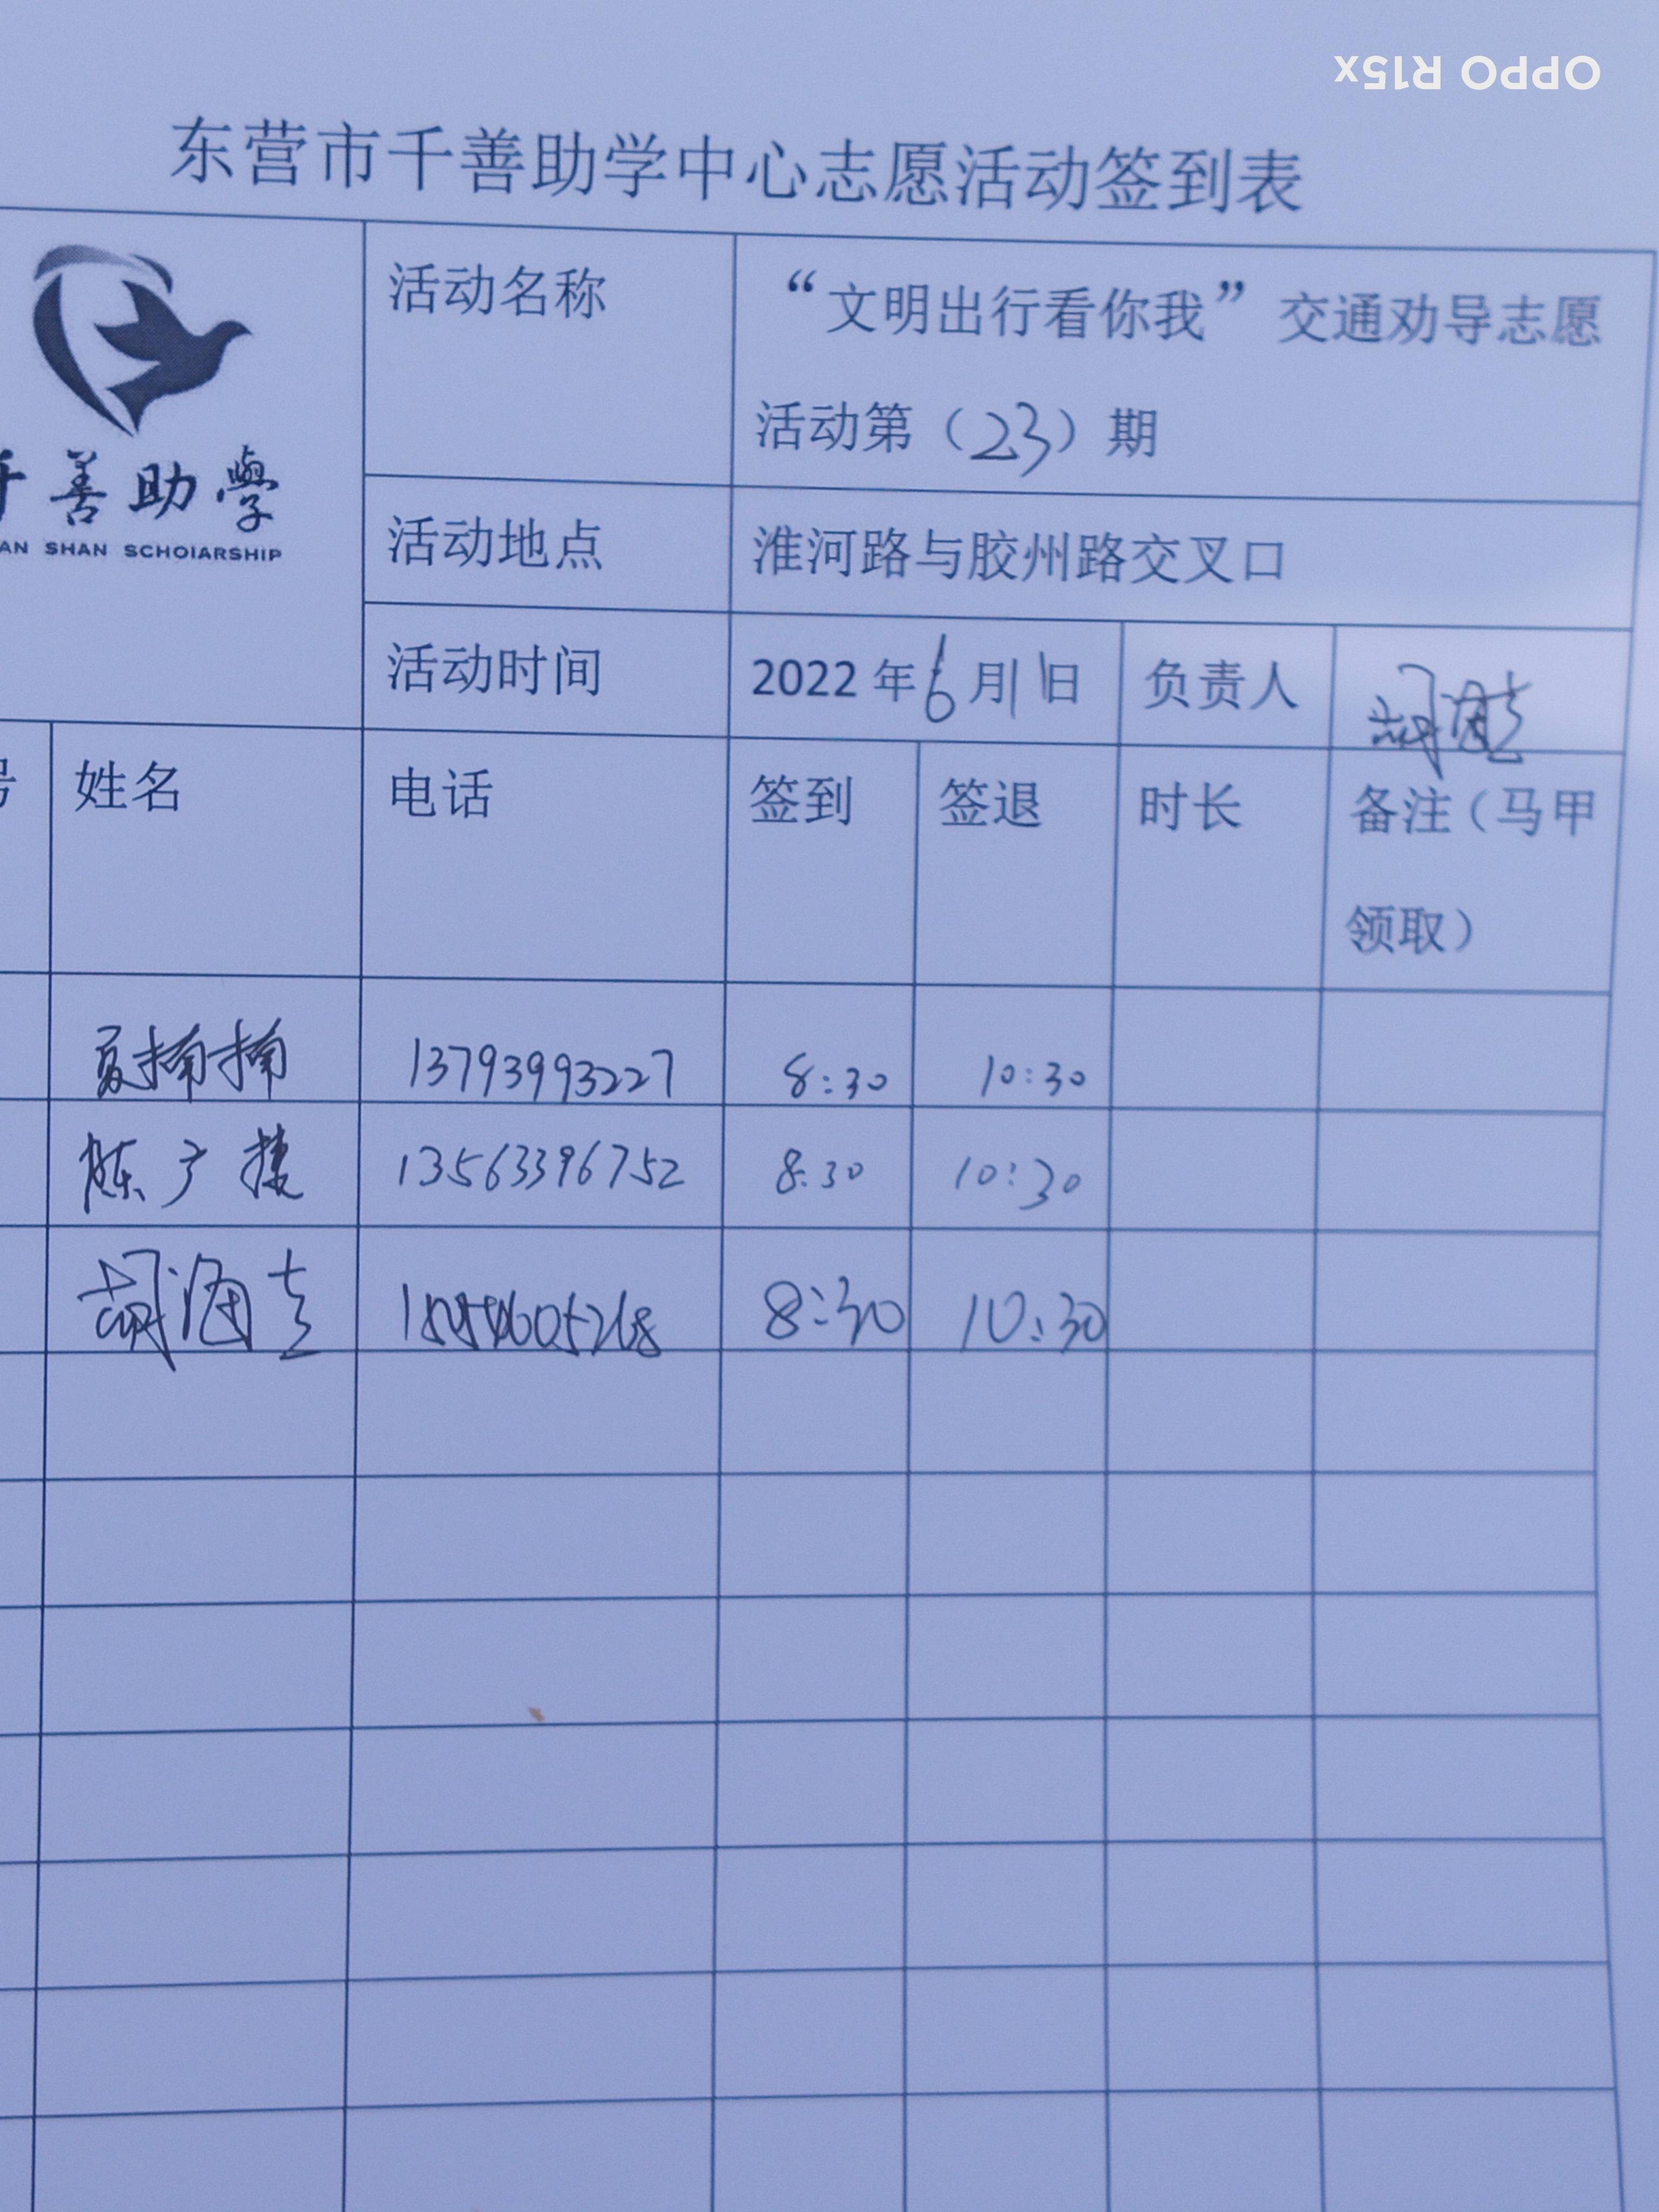 OPPO R15x
东营市千善助学中心志愿活动签到表
千善助學
AN SHAN SCHOIARSHIP
活动名称 “文明出行看你我”交通劝导志愿
活动第（23）期
活动地点 淮河路与胶州路交叉口
活动时间 2022年6月11日 负责人
号 姓名 电话 签到 签退 时长 备注（马甲
领取）
夏楠楠 13793993227 8:30 10:30
陈广捷 13563396752 8:30 10:30
胡海立 8:30 10:30